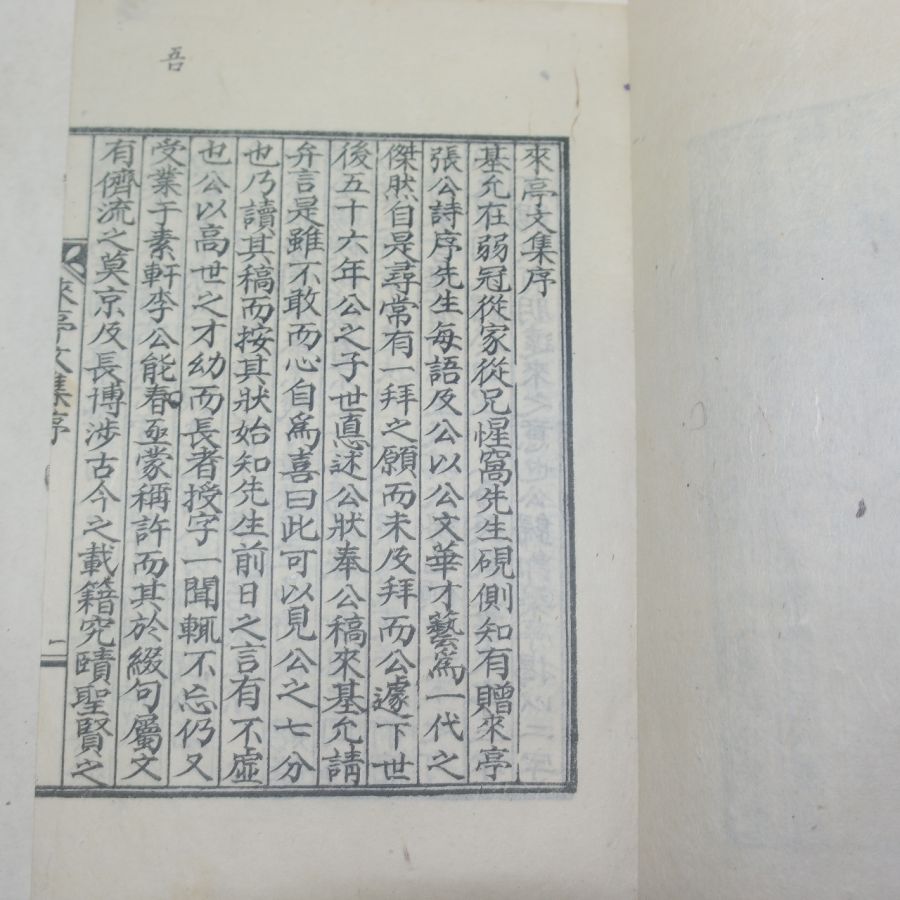 吾
來亭文集序
基允在弱冠從家從兄惺窩先生硯側知有贈來亭
張公詩序先生每語及公以公文華才藝爲一代之
傑然自是尋常有一拜之願而未及拜而公遽下世
後五十六年公之子世悳述公狀奉公稿來基允請
弁言是雖不敢而心自爲喜曰此可以見公之七分
也乃讀其稿而按其狀始知先生前日之言有不虛
也公以高世之才幼而長者授字一聞輒不忘仍又
受業于素軒李公能春亟蒙稱許而其於綴句屬文
有儕流之莫京及長博涉古今之載籍究賾聖賢之
來亭文集序
一